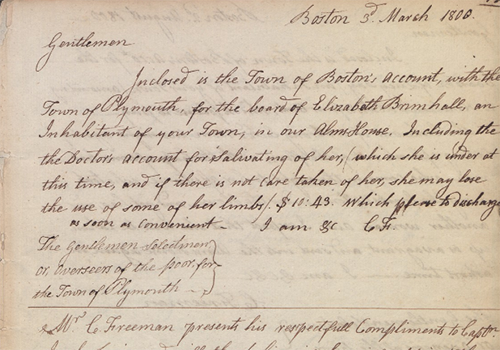 Boston 3d. March 1800.
Gentlemen
Inclosed is the Town of Boston's account, with the
Town of Plymouth, for the board of Elizabeth Brimhall, an
Inhabitant of your Town, in our Alms-House, Including the
the Doctor's account for Salivating of her, (which she is under at
this time, and if there is not care taken of her, she may lose
the use of some of her limbs) $10:43. Which please to discharge
as soon as convenient — I am &c C. F.
The Gentlemen Selectmen
or, Overseers of the poor, for
the Town of Plymouth —
Mr. C. Freeman presents his respectfull Compliments to Captn.